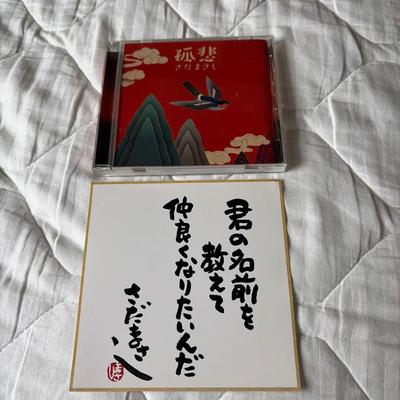 孤悲
さだまさし
君の名前を
教えて
仲良くなりたいんだ
さだまさし